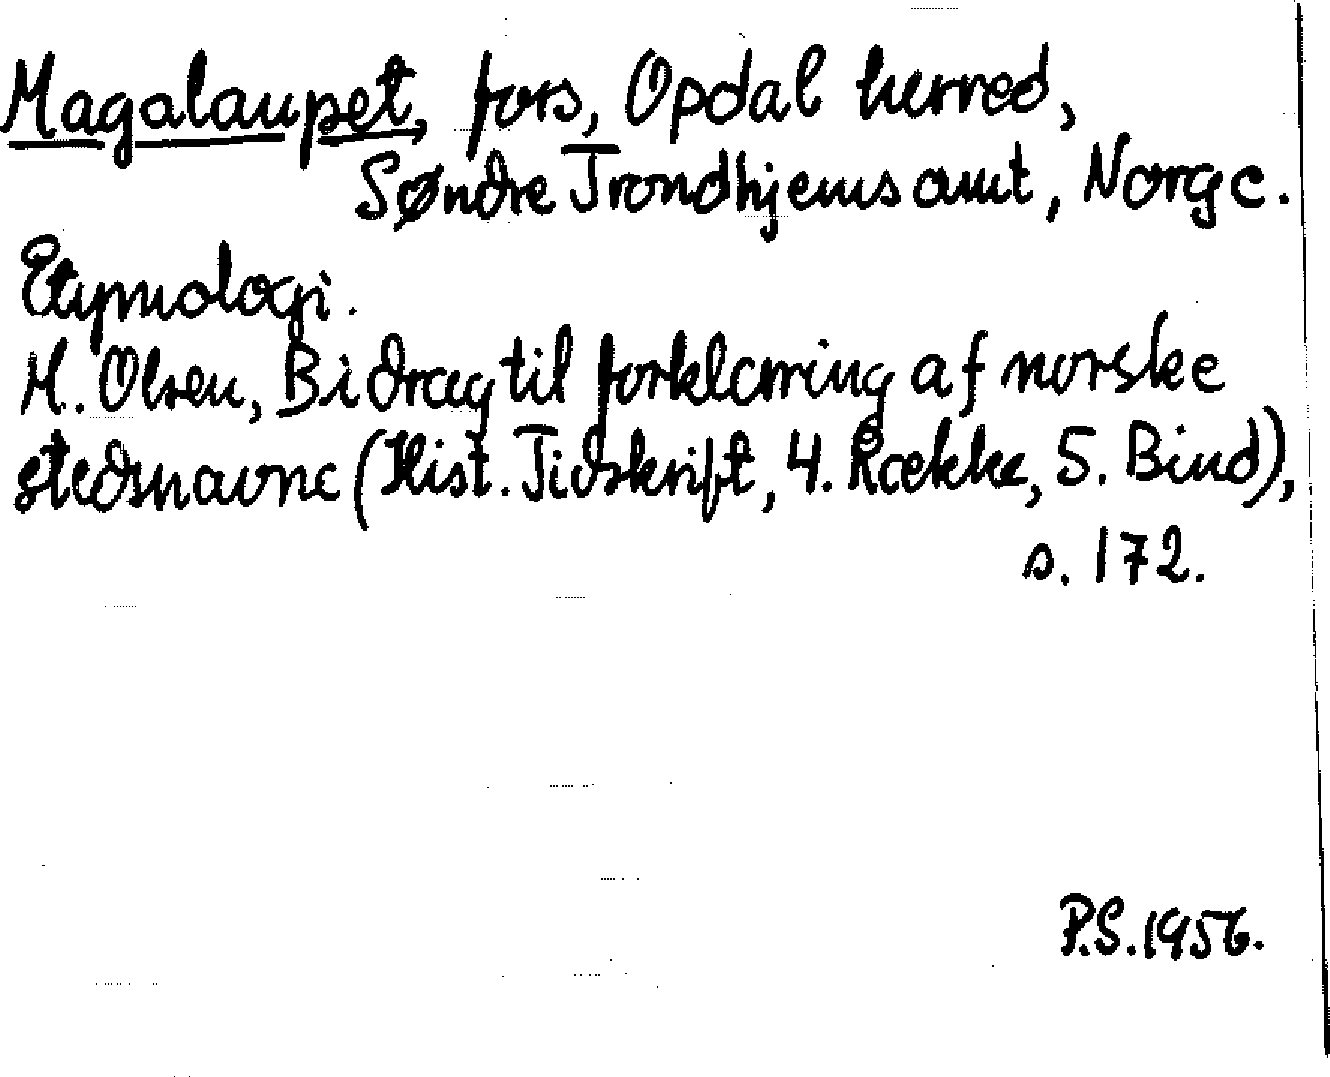 Magalaupet, fors, Opdal herred,
Søndre Trondhjems amt, Norge.
Etymologi.
M. Olsen, Bidrag til forklaring af norske
stedsnavne (Hist. Tidskrift, 4. Række, 5. Bind),
s. 172.
P.S. 1956.